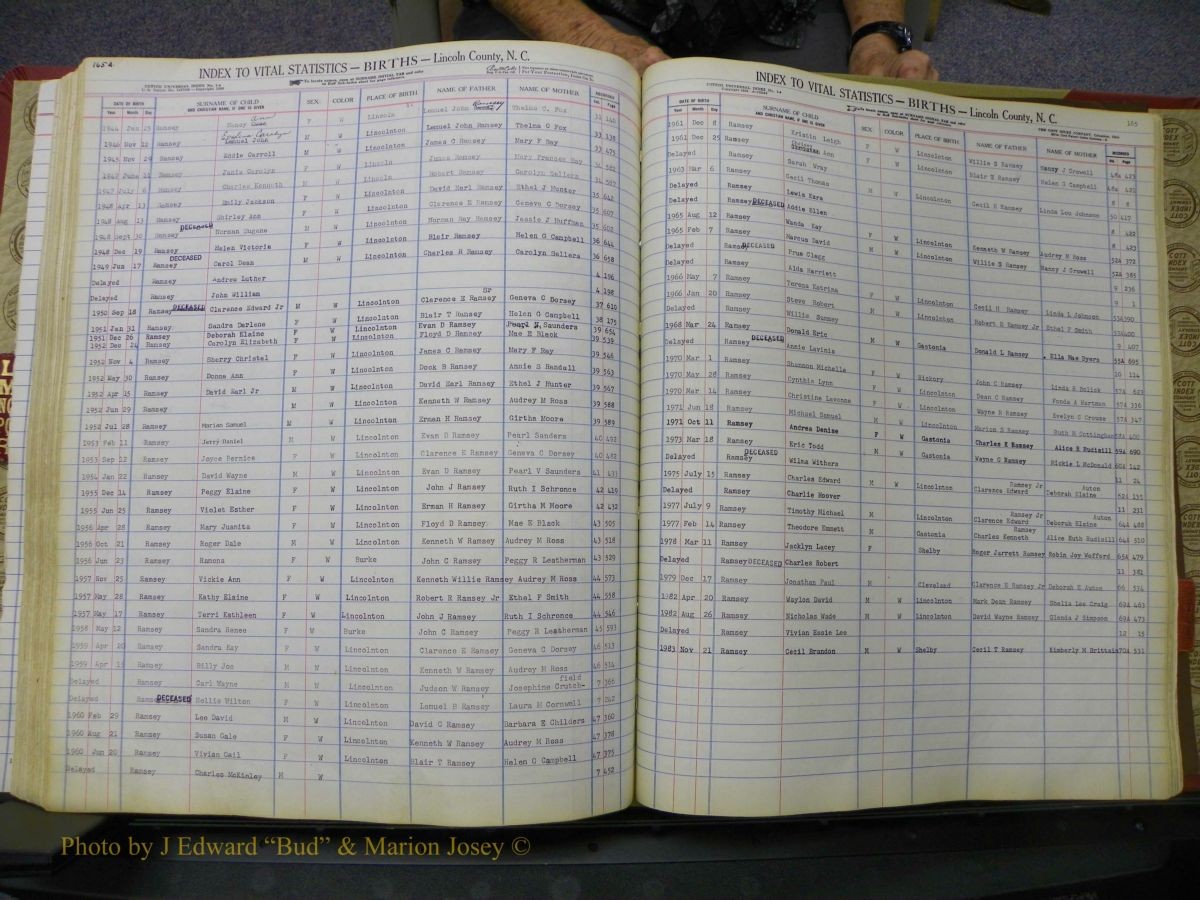 165-2
INDEX TO VITAL STATISTICS — BIRTHS — Lincoln County, N. C.
DATE OF BIRTH
Year Month Day
SURNAME OF CHILD
AND CHRISTIAN NAME, IF ONE IS GIVEN
SEX COLOR PLACE OF BIRTH NAME OF FATHER NAME OF MOTHER
Vol. Page
1944 Jan 25 Ramsey Nancy Ann F W Lincoln Lemuel John Ramsey Thelma C. Fox
1946 Nov 12 Ramsey Lemuel John M W Lincolnton Lemuel John Ramsey Thelma G Fox 33 138
1945 Nov 29 Ramsey Encie Carroll M W Lincolnton James C Ramsey Mary F Ray 33 475
1947 June Ramsey Janis Carolyn F W Lincoln James Ramsey Mary Frances Ray
1947 July 8 Ramsey Charles Kenneth M W Lincoln Robert Ramsey Carolyn Sellers
1948 Apr 13 Ramsey Emily Jackson F W Lincolnton David Earl Ramsey Ethel J Hunter 35 642
1948 Aug 13 Ramsey Shirley Ann F W Lincolnton Clarence E Ramsey Geneva C Dorsey 35 607
1948 Sept 30 Ramsey DECEASED Norman Eugene M W Lincolnton Norman Ray Ramsey Jessie J Huffman 35 602
1948 Dec 19 Ramsey Helen Victoria F W Lincolnton Blair Ramsey Helen G Campbell 36 644
1949 Jun 17 Ramsey DECEASED Carol Dean M W Lincolnton Charles R Ramsey Carolyn Sellers 36 658
Delayed Ramsey Andrew Luther 4 196
Delayed Ramsey John William 4 198
1950 Sep 18 Ramsey DECEASED Clarence Edward Jr M W Lincolnton Clarence E Ramsey Sr Geneva C Dorsey 37 610
1951 Jan 31 Ramsey Sandra Darlene F W Lincolnton Blair T Ramsey Helen G Campbell 38 175
1951 Dec 26 Ramsey Deborah Elaine F W Lincolnton Evan D Ramsey Pearl V. Saunders 39 654
1952 Dec 24 Ramsey Carolyn Elizabeth F W Lincolnton Floyd D Ramsey Mae E Black 39 539
1952 Nov 4 Ramsey Sherry Christel F W Lincolnton James C Ramsey Mary F Ray 39 546
1952 May 30 Ramsey Donna Ann F W Lincolnton Dock B Ramsey Annie S Randall 39 563
1952 Apr 15 Ramsey David Earl Jr Lincolnton David Earl Ramsey Ethel J Hunter 39 567
1952 Jun 29 Ramsey M W Lincolnton Kenneth W Ramsey Audrey M Ross 39 588
1952 Jul 28 Ramsey Marian Samuel M W Lincolnton Erman H Ramsey Girtha Moore 39 589
1953 Feb 11 Ramsey Jerry Daniel M W Lincolnton Evan D Ramsey Pearl Sanders 40 492
1953 Sep 12 Ramsey Joyce Bernice F W Lincolnton Clarence E Ramsey Geneva C Dorsey 40 482
1954 Jan 22 Ramsey David Wayne M W Lincolnton Evan D Ramsey Pearl V Saunders 41 433
1955 Dec 14 Ramsey Peggy Elaine F W Lincolnton John J Ramsey Ruth I Schronce 42 419
1955 Jun 25 Ramsey Violet Esther F W Lincolnton Erman H Ramsey Girtha M Moore 42 432
1956 Apr 28 Ramsey Mary Juanita F W Lincolnton Floyd D Ramsey Mae E Black 43 505
1956 Oct 21 Ramsey Roger Dale M W Lincolnton Kenneth W Ramsey Audrey M Ross 43 518
1956 Jun 23 Ramsey Ramona F W Burke John C Ramsey Peggy R Leatherman 43 529
1957 Nov 25 Ramsey Vickie Ann F W Lincolnton Kenneth Willie Ramsey Audrey M Ross 44 573
1957 May 28 Ramsey Kathy Elaine F W Lincolnton Robert R Ramsey Jr Ethel F Smith 44 558
1957 May 17 Ramsey Terri Kathleen F W Lincolnton John J Ramsey Ruth I Schronce 44 546
1958 May 12 Ramsey Sandra Renee F W Burke John C Ramsey Peggy R Leatherman 45 593
1959 Apr 20 Ramsey Sandra Kay F W Lincolnton Clarence E Ramsey Geneva C Dorsey 46 513
1959 Apr 15 Ramsey Billy Joe M W Lincolnton Kenneth W Ramsey Audrey M Ross 46 514
Delayed Ramsey Carl Wayne M W Lincolnton Judson W Ramsey Josephine Crutch-field 7 366
Delayed Ramsey DECEASED Hollis Wilton F W Lincolnton Lemuel B Ramsey Laura M Cornwell 7 242
1960 Feb 29 Ramsey Lee David M W Lincolnton David C Ramsey Barbara E Childers 47 360
1960 Aug 21 Ramsey Susan Gale F W Lincolnton Kenneth W Ramsey Audrey M Ross 47 378
1960 Jun 20 Ramsey Vivian Gail F W Lincolnton Blair T Ramsey Helen C Campbell 47 375
Delayed Ramsey Charles McKinley M W 7 452
INDEX TO VITAL STATISTICS — BIRTHS — Lincoln County, N. C.
165
DATE OF BIRTH
Year Month Day
SURNAME OF CHILD
AND CHRISTIAN NAME, IF ONE IS GIVEN
SEX COLOR PLACE OF BIRTH NAME OF FATHER NAME OF MOTHER
Vol. Page
1961 Dec 8 Ramsey Kristin Leigh F W Lincolnton Willie S Ramsey Nanny J Crowell 48a 423
1961 Dec 25 Ramsey Ann F W Lincolnton Blair T Ramsey Helen G Campbell 48a 422
Delayed Ramsey Sarah Wray 8 8
1963 Mar 6 Ramsey Cecil Thomas M W Lincolnton Cecil H Ramsey Linda Lou Johnson 50 417
Delayed Ramsey Lewis Ezra 8 422
Delayed Ramsey DECEASED Addie Ellen 8 423
1965 Aug 12 Ramsey Wanda Kay F W Lincolnton Kenneth W Ramsey Audrey M Ross 52A 372
1965 Feb 7 Ramsey Marcus David M W Lincolnton Willie S Ramsey Nanny J Crowell 52A 385
Delayed Ramsey DECEASED Prue Clegg 9 236
Delayed Ramsey Alda Harriett 9 1
1966 May 7 Ramsey Terena Katrina F W Lincolnton Cecil H Ramsey Linda L Johnson 53A 390
1966 Jan 20 Ramsey Steve Robert M W Lincolnton Robert R Ramsey Jr Ethel F Smith 53A 400
Delayed Ramsey Willie Summey 9 407
1968 Mar 24 Ramsey Donald Eric M W Gastonia Donald L Ramsey Ella Mae Dyers 55A 695
Delayed Ramsey DECEASED Annie Lavinia 10 114
1970 Mar 1 Ramsey Shannon Michelle F W Hickory John C Ramsey Linda R Bolick 57A 623
1970 May 28 Ramsey Cynthia Lynn F W Lincolnton Dean C Ramsey Fonda A Hartman 57A 336
1970 Mar 14 Ramsey Christine Lavonne F W Lincolnton Wayne R Ramsey Evelyn C Crouse 57A 347
1971 Jun 18 Ramsey Michael Samuel M W Lincolnton Marion S Ramsey Ruth M Cottingham 58A 400
1971 Oct 11 Ramsey Andrea Denise F W Gastonia Charles K Ramsey Alice R Rudisill 59A 690
1973 Mar 18 Ramsey Eric Todd M W Gastonia Wayne G Ramsey Rickie L McDonald 60A 142
Delayed Ramsey DECEASED Wilma Withers 11 24
1975 July 15 Ramsey Charles Edward M W Lincolnton Clarence Edward Ramsey Jr Deborah Elaine Auton 62A 131
Delayed Ramsey Charlie Hoover 11 231
1977 July 9 Ramsey Timothy Michael M Lincolnton Clarence Edward Ramsey Jr Deborah Elaine Auton 64A 488
1977 Feb 14 Ramsey Theodore Emmett M Gastonia Charles Kenneth Ramsey Alice Ruth Rudisill 64A 510
1978 Mar 11 Ramsey Jacklyn Lacey F Shelby Roger Jarrett Ramsey Robin Joy Wofford 65A 479
Delayed Ramsey DECEASED Charles Robert 11 382
1979 Dec 17 Ramsey Jonathan Paul M Cleveland Clarence E Ramsey Jr Deborah E Auton 66 534
1982 Apr 20 Ramsey Waylon David M W Lincolnton Mark Dean Ramsey Shelia Lee Craig 69A 463
1982 Aug 26 Ramsey Nicholas Wade M W Lincolnton David Wayne Ramsey Glenda J Simpson 69A 473
Delayed Ramsey Vivian Essie Lee 12 15
1983 Nov 21 Ramsey Cecil Brandon M W Shelby Cecil T Ramsey Kimberly M Brittain 70A 531
COTT INDEX COMPANY
Photo by J Edward “Bud” & Marion Josey ©